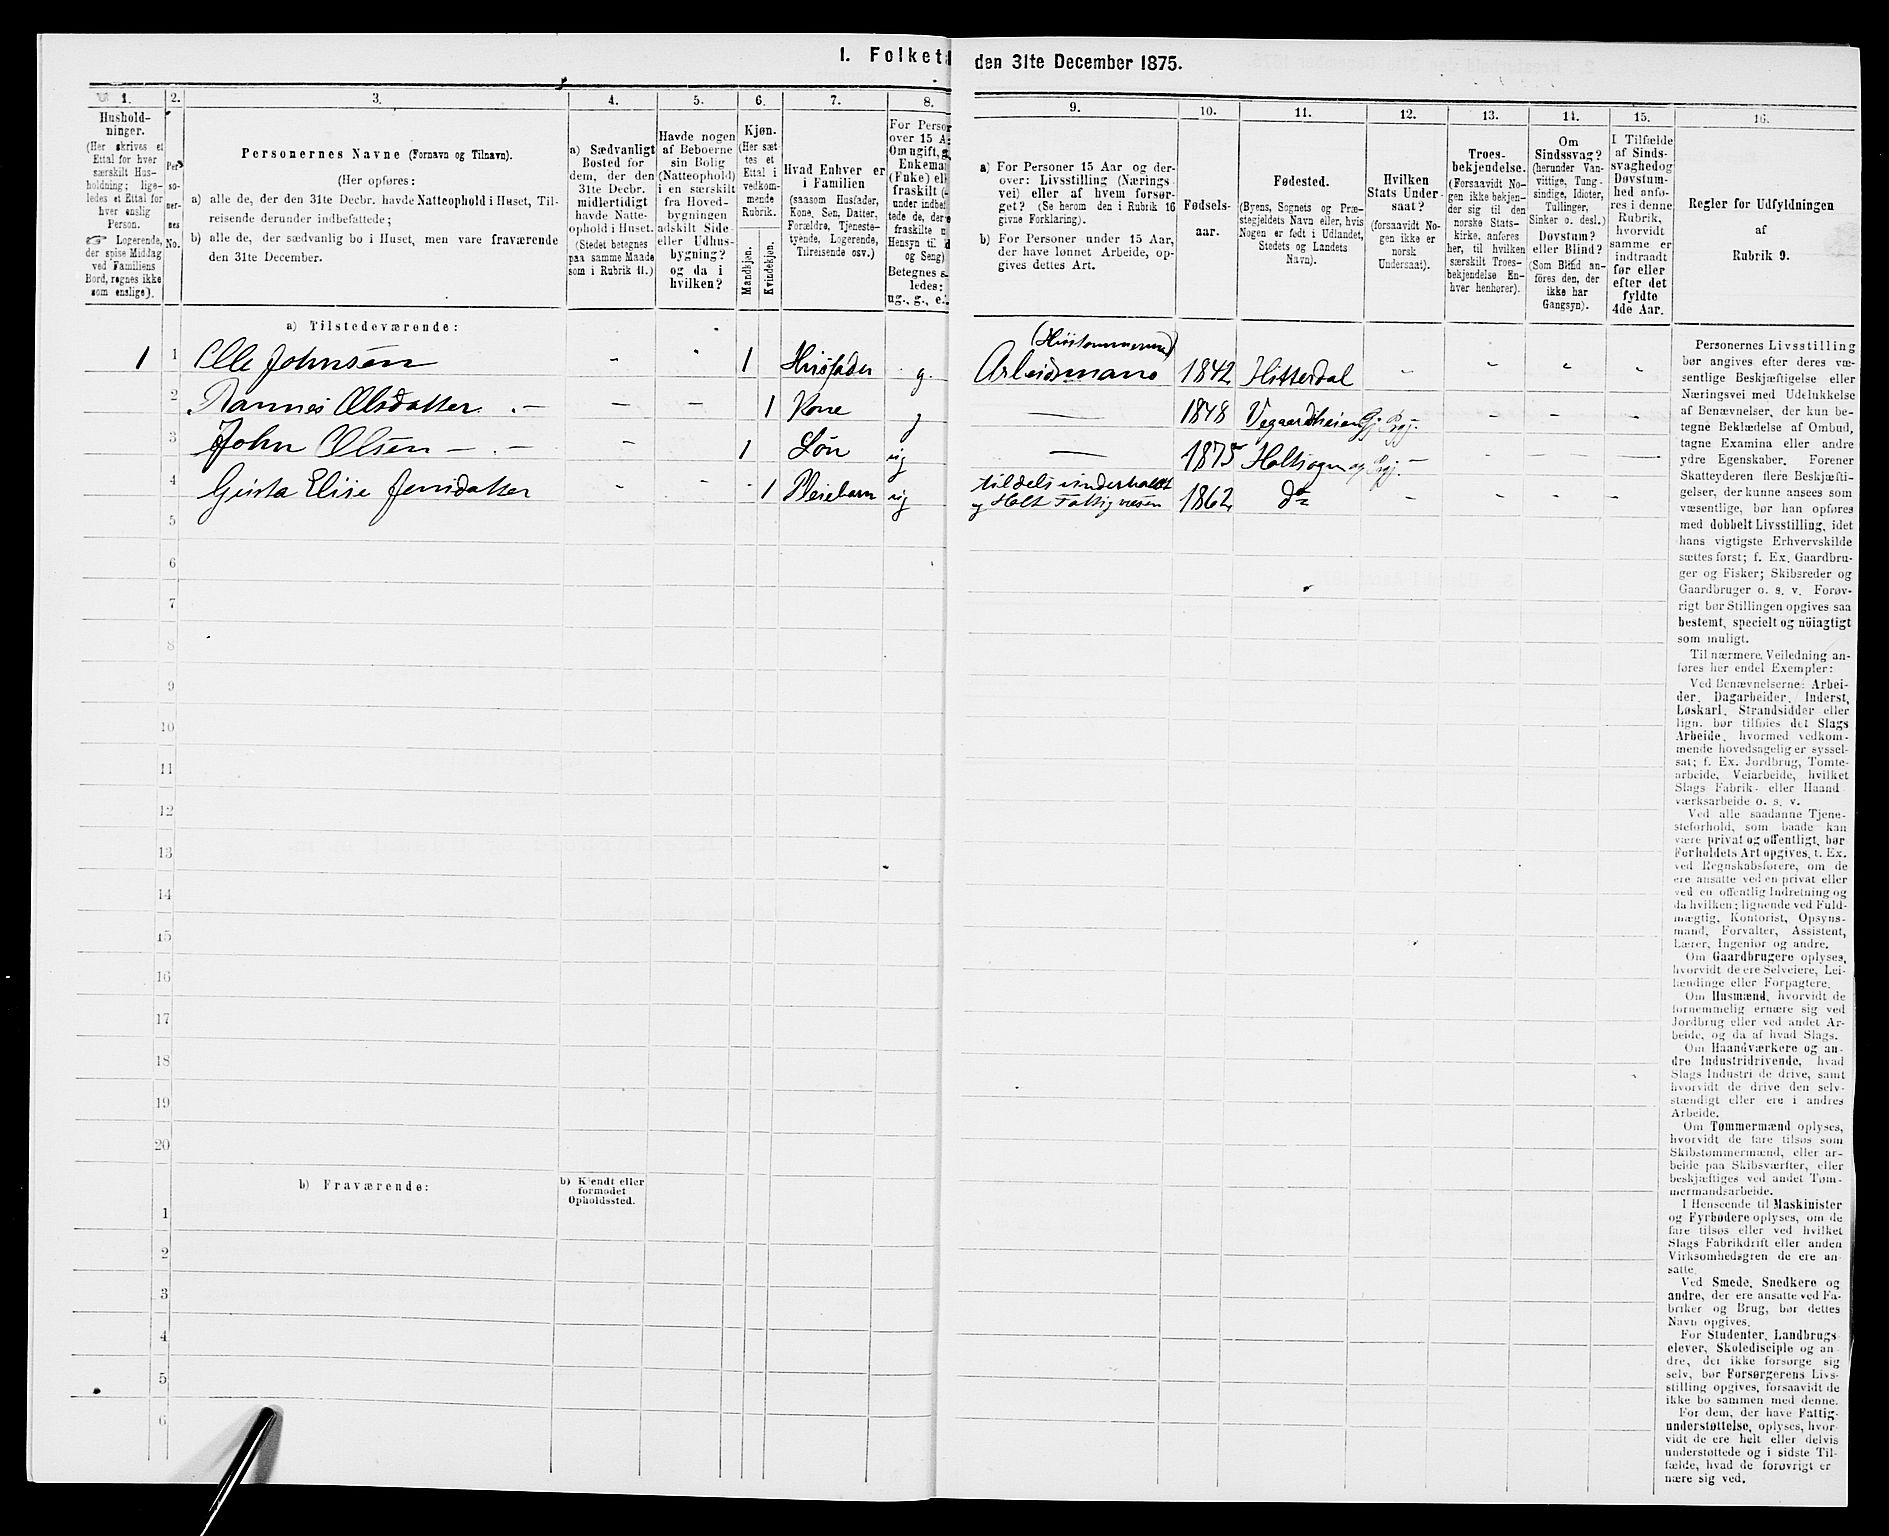 I. Folket
den 31te December 1875.
1.
Hushold-
ninger.
(Her skrives et
Ettal for hver
særskilt Hus-
holdning; lige-
ledes et Ettal for
hver enslig
Person.
☞ Logerende,
der spise Middag
ved Familiens
Bord, regnes ikke
som enslige).
2.
Per-
so-
ner-
nes
No.
3.
Personernes Navne (Fornavn og Tilnavn).
(Her opføres:
a) alle de, der den 31te Decbr. havde Natteophold i Huset, Til-
reisende derunder indbefattede;
b) alle de, der sædvanlig bo i Huset, men vare fraværende
den 31te December.
4.
a) Sædvanligt
Bosted for
dem, der den
31te Decbr.
midlertidigt
havde Natte-
ophold i Huset.
(Stedet betegnes
paa samme Maade
som i Rubrik 11.)
5.
Havde nogen
af Beboerne
sin Bolig
(Natteophold)
i en særskilt
fra Hoved-
bygningen
adskilt Side-
eller Udhus-
bygning?
og da i
hvilken?
6.
Kjøn.
(Her sæt-
tes et
Ettal i
vedkom-
mende
Rubrik.
Mandkjøn.
Kvindekjøn.
7.
Hvad Enhver er
i Familien
(saasom Husfader,
Kone, Søn, Datter,
Forældre, Tjeneste-
tyende, Logerende,
Tilreisende osv.)
8.
For Perso
over 15 A
Om ugift, g
Enkema
(Fuke) ell
fraskilt (-
under indbef
tede de, der e
fraskilte
Hensyn til
og Seng)
Betegnes s
ledes:
ug., g., e.
9.
a) For Personer 15 Aar og der-
over: Livsstilling (Nærings
vei) eller af hvem forsør-
get? (Se herom den i Rubrik 16
givne Forklaring).
b) For Personer under 15 Aar,
der have lønnet Arbeide, op-
gives dettes Art.
10.
Fødsels-
aar.
11.
Fødested.
(Byens, Sognets og Præ-
stegjeldets Navn eller, hvis
Nogen er født i Udlandet,
Stedets og Landets
Navn).
12.
Hvilken
Stats Under-
saat?
(forsaavidt No-
gen ikke er
norsk
Undersaat).
13.
Troes-
bekjendelse.
(Forsaavidt No-
gen ikke bekjen-
der sig til den
norske Stats-
kirke, anføres
her, til hvilken
særskilt Troes-
bekjendelse En-
hver henhører).
14.
Om
Sindssvag?
(herunder Van-
vittige, Tung-
sindige, Idioter,
Tullinger,
Sinker o. desl.)
Døvstum?
eller Blind?
(Som Blind an-
føres den, der
ikke har
Gangsyn).
15.
I Tilfælde
af Sinds-
svaghed og
Døvstum-
hed anfø-
res i denne
Rubrik,
hvorvidt
samme er
indtraadt
før eller
efter det
fyldte
4de Aar.
16.
Regler for Udfyldningen
af
Rubrik 9.
a) Tilstedeværende:
1 1 Olle Johnsen - - 1 Husfader g. (Huustømmermand) Arbeidsmand 1842 Hitterdal - - - -
2 Olsdatter - - - 1 Kone g — 1848 Vegaardsheien Gj Prgj. - - -
3 John Olsen - - - 1 Søn ug — 1875 Holtsogn og Prgj. - - - -
4 Elise Jensdatter - - 1 Pleiebarn ug tildels underholdt og Holt Fattigvæsen 1862 do - - - -
5
6
7
8
9
10
11
12
13
14
15
16
17
18
19
20
b) Fraværende:
b) Kjendt eller
formodet
Opholdssted.
1
2
3
4
5
6
Personernes Livsstilling
bør angives efter deres væ-
sentlige Beskjæftigelse eller
Næringsvei med Udelukkelse
af Benævnelser, der kun be-
tegne Beklædelse af Ombud,
tagne Examina eller andre
ydre Egenskaber. Forener
Skatteyderen flere Beskjæfti-
gelser, der kunne ansees som
væsentlige, bør han opføres
med dobbelt Livsstilling, idet
hans vigtigste Erhvervskilde
sættes først; f. Ex. Gaardbru-
ger og Fisker; Skibsreder og
Gaardbruger o. s. v. Forøv-
rigt bør Stillingen opgives saa
bestemt, specielt og nöiagtigt
som muligt.
Til nærmere Veiledning an-
føres her endel Exempler:
Ved Benævnelserne: Arbei-
der, Dagarbeider, Inderst,
Løskarl, Strandsidder eller
lign. bør tilføies det Slags
Arbeide, hvormed vedkom-
mende hovedsagelig er syssel-
sat; f. Ex. Jordbrug, Tomte-
arbeide, Veiarbeide, hvilket
Slags Fabrik- eller Haand
værksarbeide o. s. v.
Ved alle saadanne Tjene-
steforhold, som baade kan
være privat og offentligt, bør
Forholdets Art opgives, t. Ex.
ved Regnskabsførere, om de
ere ansatte ved en privat eller
ved en offentlig Indretning og
da hvilken; lignende ved Fuld-
mægtig, Kontorist, Opsyns-
mand, Forvalter, Assistent,
Lærer, Ingeniør og andre.
Om Gaardbrugere oplyses,
hvorvidt de ere Selveiere, Lei-
lændinge eller Forpagtere.
Om Husmænd, hvorvidt de
fornemmelig ernære sig ved
Jordbrug eller ved andet Ar-
beide, og da af hvad Slags.
Om Haandværkere og an-
dre Industridrivende, hvad
Slags Industri de drive, samt
hvorvidt de drive den selv-
stændigt eller ere i andres
Arbeide.
Om Tømmermænd oplyses,
hvorvidt de fare tilsøs som
Skibstømmermænd, eller ar-
beide paa Skibsværfter, eller
beskjæftiges ved andet Tøm-
mermandsarbeide.
I Henseende til Maskinister
og Fyrbødere oplyses, om de
fare tilsøs eller ved hvilket
Slags Fabrikdrift eller anden
Virksomhedsgren de ere an-
satte.
Ved Smede, Snedkere og
andre, der ere ansatte ved Fa-
briker og Brug, bør dettes
Navn opgives.
For Studenter, Landbrugs-
elever, Skoledisciple og an-
dre, der ikke forsørge sig
selv, bør Forsørgerens Livs-
stilling opgives, forsaavidt de
ikke bo sammen med denne.
For dem, der have Fattig-
understøttelse, oplyses, hvor-
vidt de ere helt eller delvis
understøttede og i sidste Til-
fælde, hvad de forøvrigt er
nære sig ved.